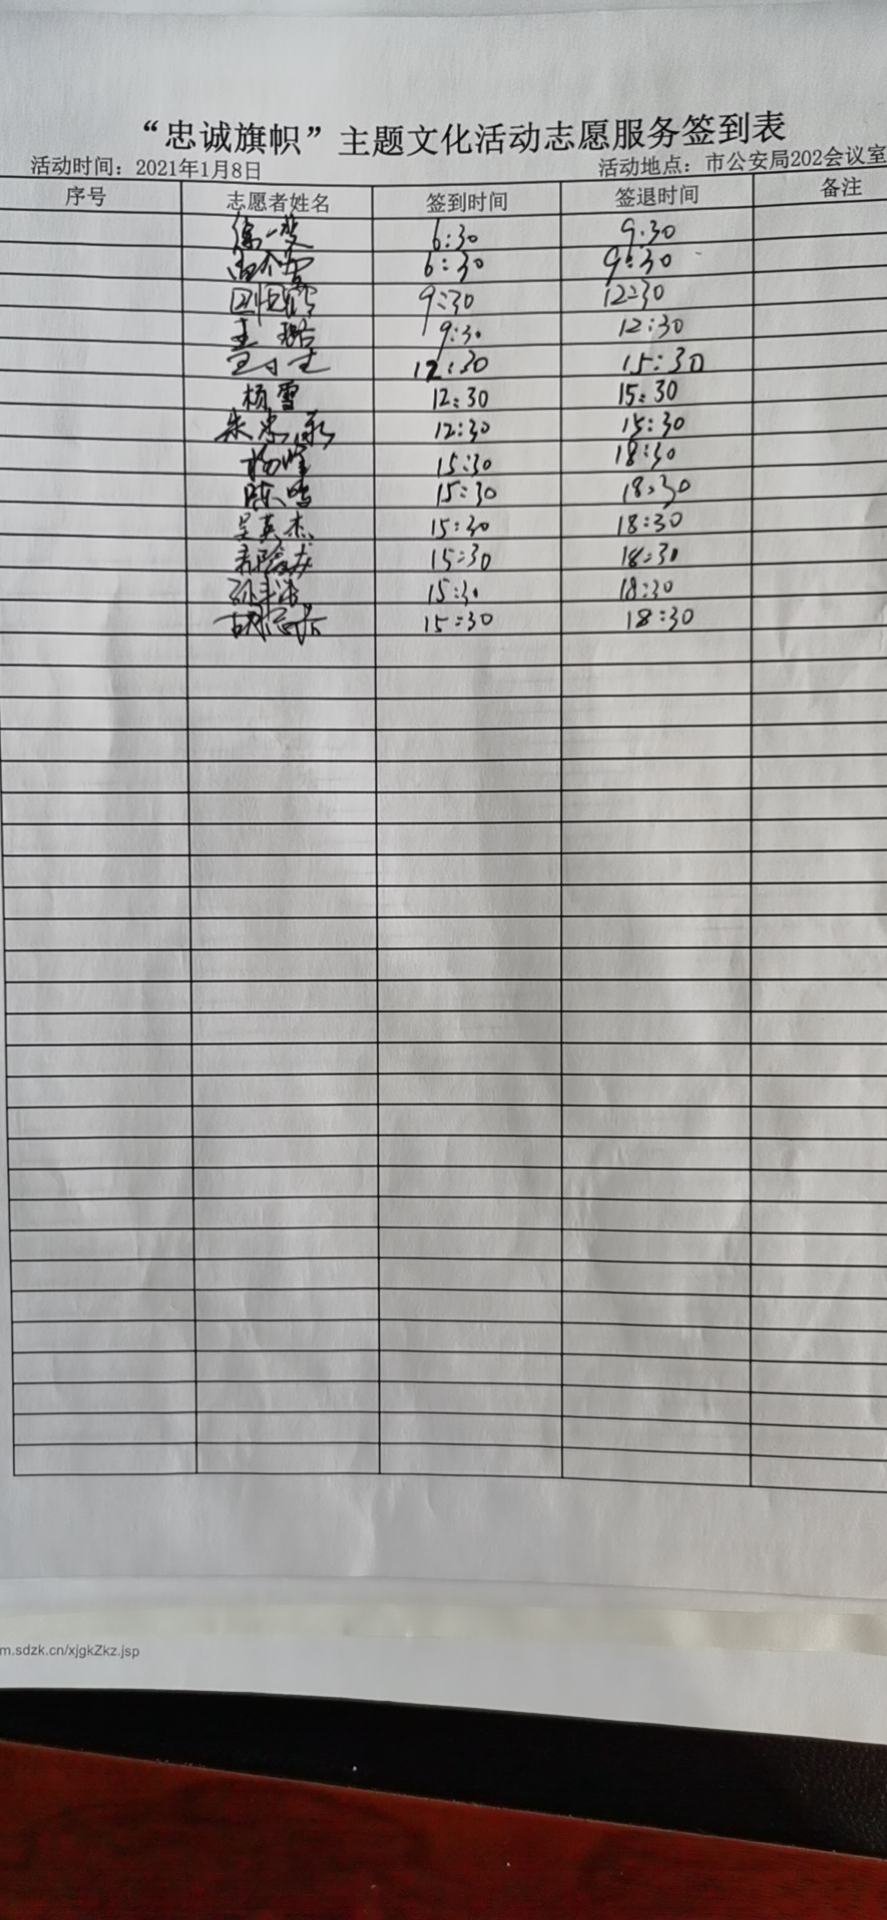 “忠诚旗帜”主题文化活动志愿服务签到表
活动时间：2021年1月8日 活动地点：市公安局202会议室
序号 志愿者姓名 签到时间 签退时间 备注
6:30 9:30
6:30 9:30
9:30 12:30
王璐 9:30 12:30
12:30 15:30
杨雪 12:30 15:30
12:30 15:30
15:30 18:30
15:30 18:30
吴英杰 15:30 18:30
15:30 18:30
15:30 18:30
15:30 18:30
m.sdzk.cn/xjgkZkz.jsp